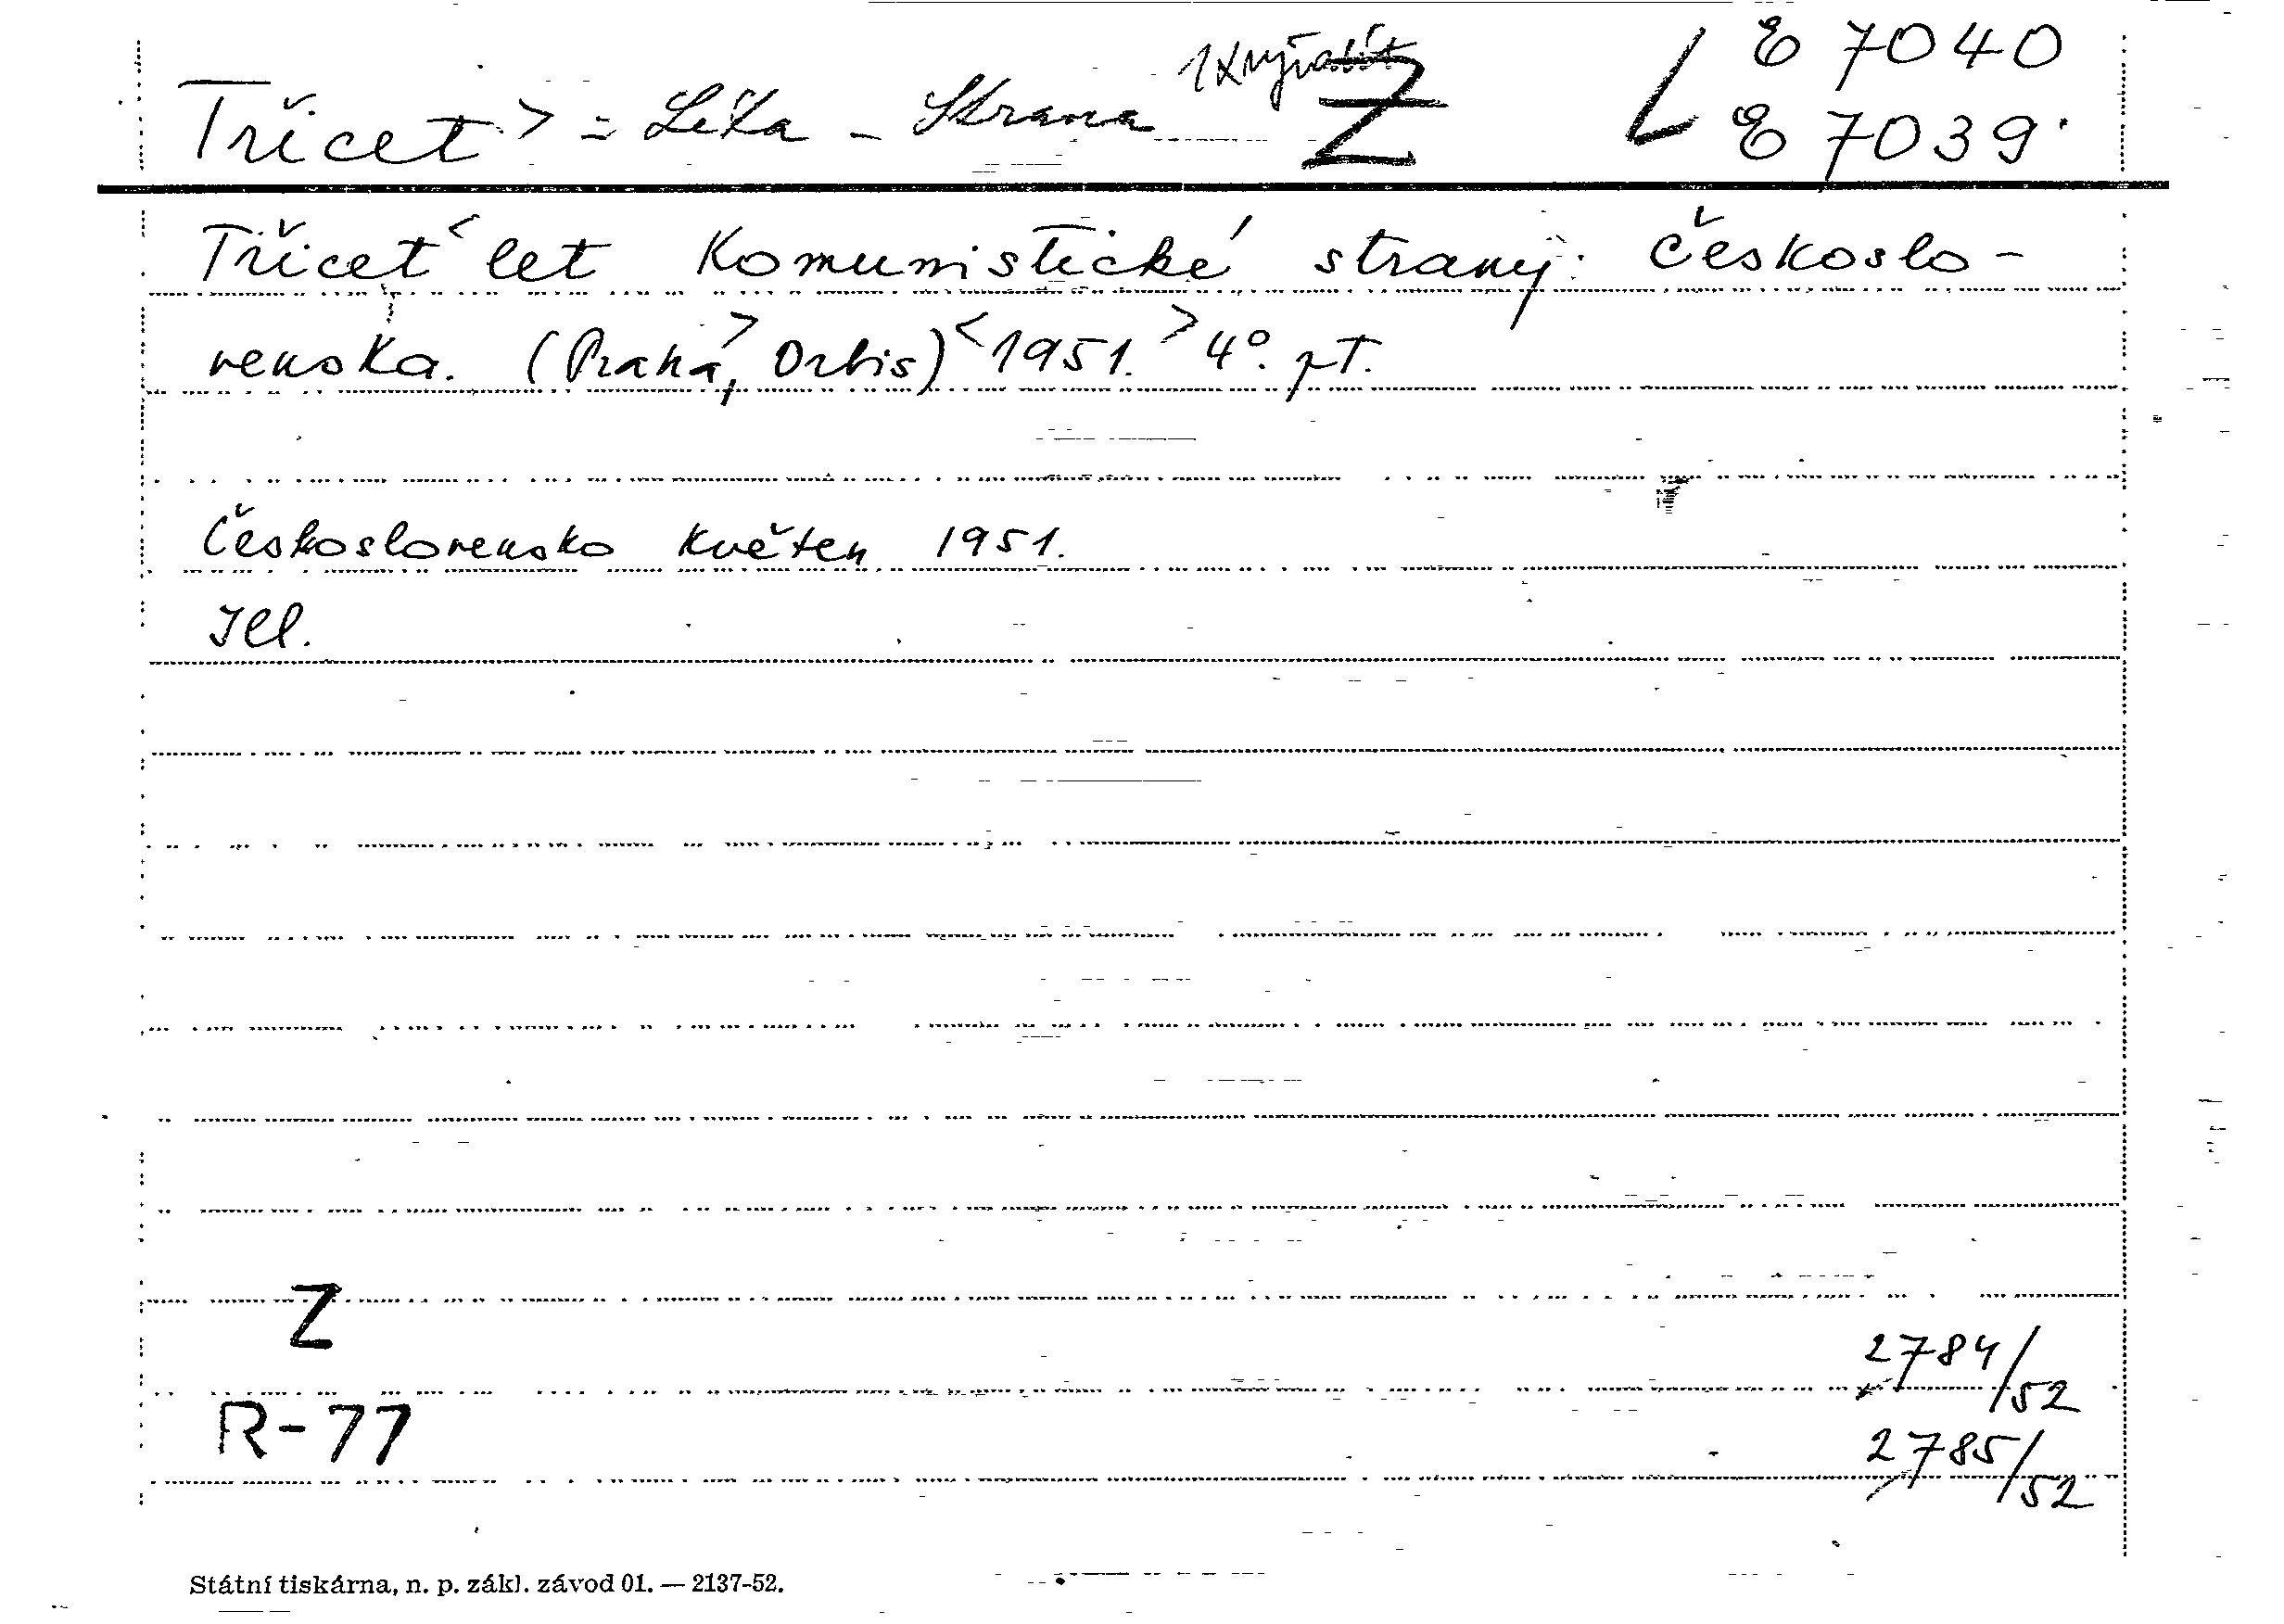 1x vyřadit E 7040
Třicet > = Léta - Strana Z L E 7039
Třicet < let Komunistické strany Českoslo-
venska. (Praha, > Orbis) < 1951. > 4°. pT.
Československo Květen 1951.
Ill.
Z
2784/52
R-77
2785/52
Státní tiskárna, n. p. zákl. závod 01. — 2137-52.